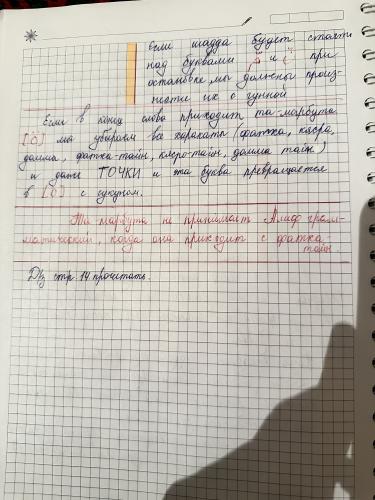 если шадда будет стоять
над буквами مّ и نّ при
остановке, мы должны произ-
нести их с гунной
Если в конце слова приходит та-марбута
[ة] мы убираем все харакаты (фатха, касра,
дамма, фатха-тайн, касра-тайн, дамма тайн)
и даже ТОЧКИ и эта буква превращается
в [ه] с сукуном.
Та марбута не принимает Алиф грам-
матический, когда она приходит с фатха
тайн.
Д/з стр 14 прочитать.